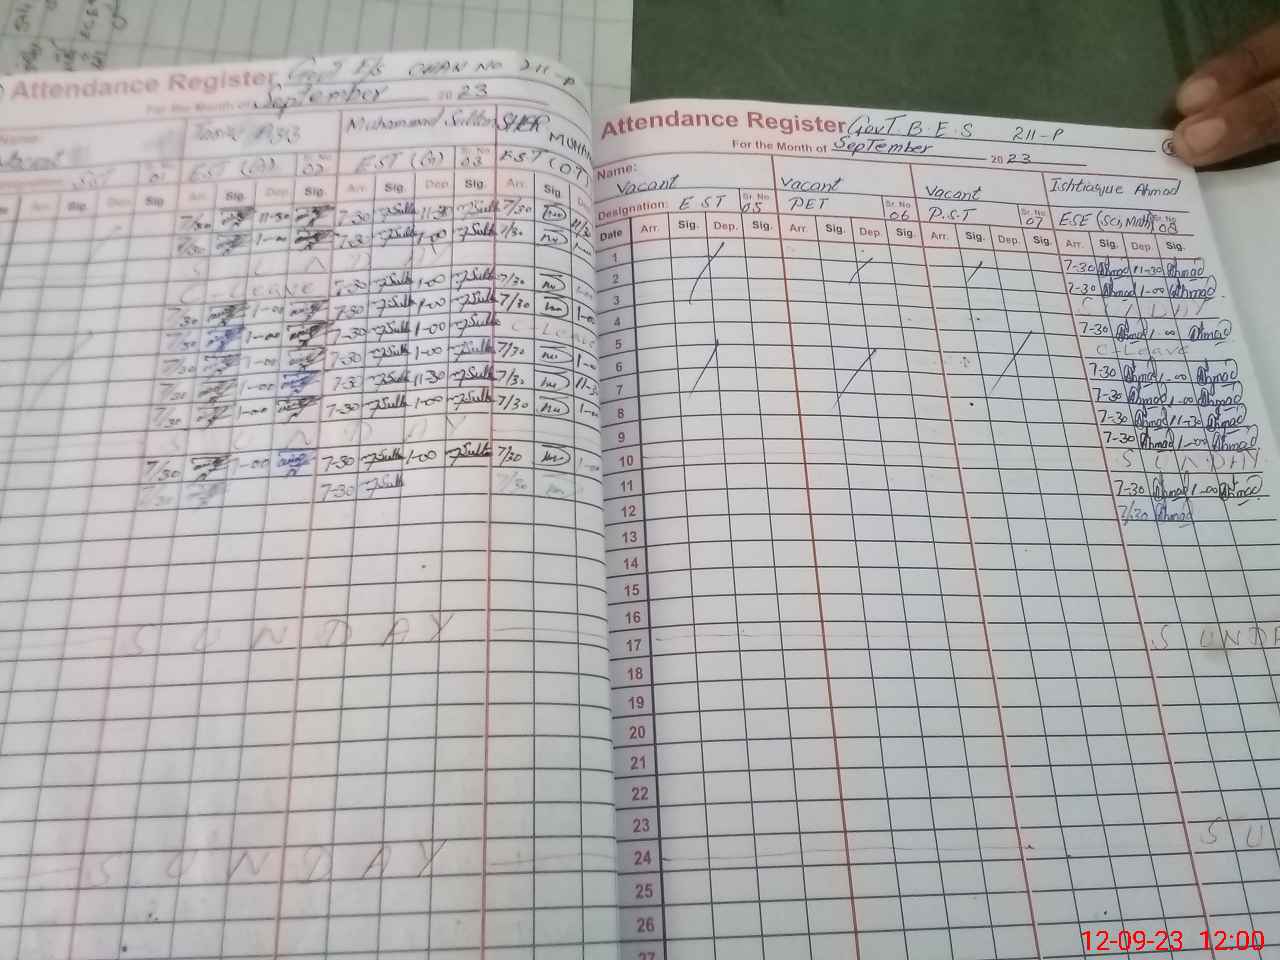 Attendance Register Govt E/S CHAK NO 211-P
For the Month of September 2023
Vacant Tariq Muhammad Sultan SHER MUHAM
SST 01 EST (A) 02 EST (A) Sr. No 03 EST (07)
Arr. Sig. Dep. Sig. Arr. Sig. Dep. Sig. Arr. Sig. Dep. Sig. Arr. Sig. De
7/30 11-30 7-30 Sultan 11-30 Sultan 7/30 11/30
7/30 1-00 7-30 Sultan 1-00 Sultan 7/30 1-00
S U N D A Y
C-Leave 7-30 Sultan 1-00 Sultan 7/30
7/30 1-00 7-30 Sultan 1-00 Sultan 7/30 1-00
7/30 1-00 7-30 Sultan 1-00 Sultan C-Leave
7/30 1-00 7-30 Sultan 1-00 Sultan 7/30 1-00
7/30 1-00 7-30 Sultan 11-30 Sultan 7/30 11-30
7/30 1-00 7-30 Sultan 1-00 Sultan 7/30 1-00
S U N D A Y
7/30 1-00 7-30 Sultan 1-00 Sultan 7/30 1-00
7/30 7-30 Sultan 7/30
S U N D A Y
S U N D A Y
Attendance Register Govt. B.E.S 211-P
For the Month of September 2023
Name: Vacant Vacant Vacant Ishtiaque Ahmad
Designation: EST Sr. No 05 PET Sr. No 06 P.S.T Sr. No 07 ESE (Sci, Math) Sr. No 08
Date Arr. Sig. Dep. Sig. Arr. Sig. Dep. Sig. Arr. Sig. Dep. Sig. Arr. Sig. Dep. Sig.
1 7-30 Ahmad 11-30 Ahmad
2 7-30 Ahmad 1-00 Ahmad
3 S U N D A Y
4 7-30 Ahmad 1-00 Ahmad
5 C-Leave
6 7-30 Ahmad 1-00 Ahmad
7 7-30 Ahmad 1-00 Ahmad
8 7-30 Ahmad 11-30 Ahmad
9 7-30 Ahmad 1-00 Ahmad
10 S U N D A Y
11 7-30 Ahmad 1-00 Ahmad
12 7/30 Ahmad
13
14
15
16
17 S U N D A
18
19
20
21
22
23
24 S U
25
26
27
12-09-23 12:00